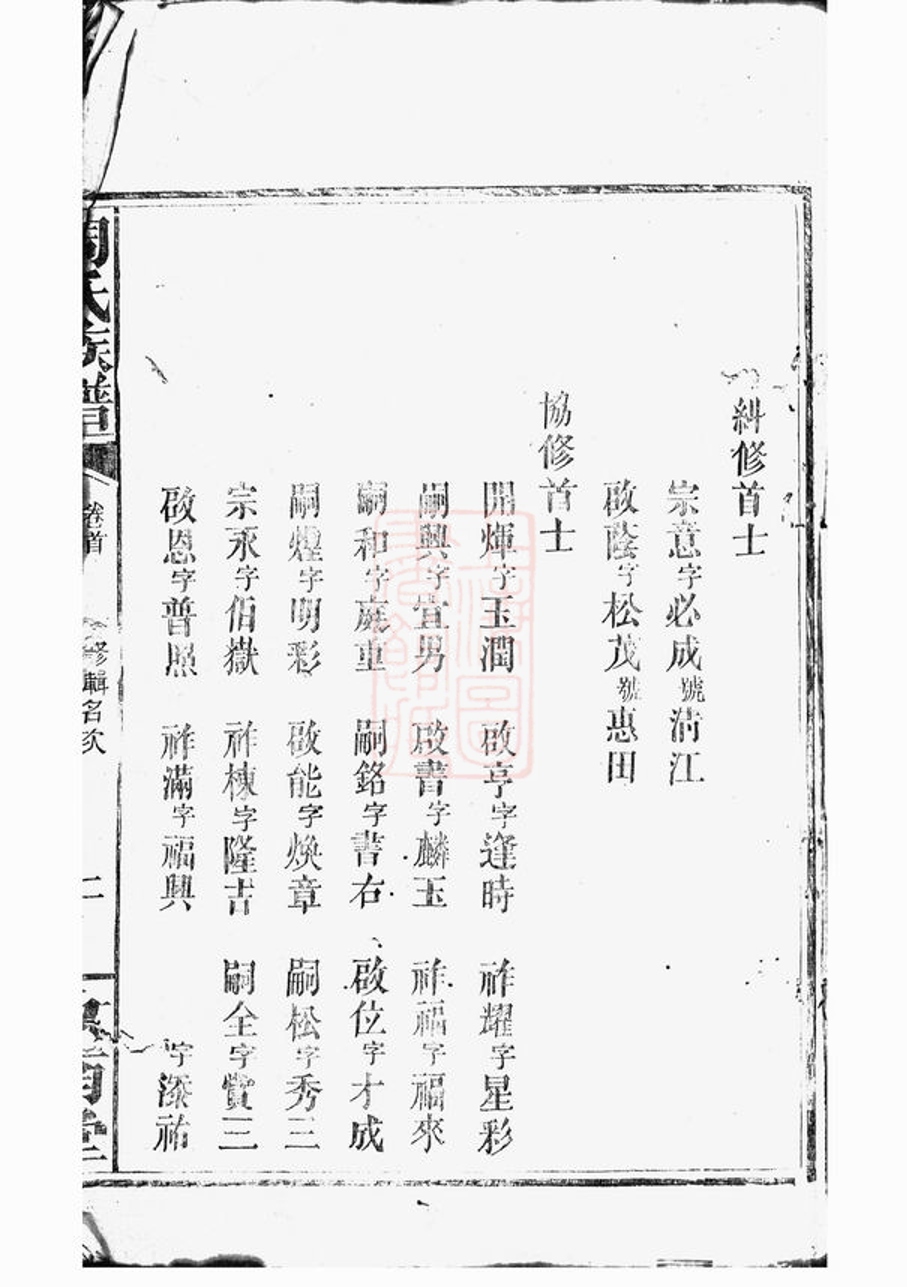 糾修首士
宗意字必成號清江
啟蔭字松茂號惠田
協修首士
開煇字玉潤 啟亨字逢時 祚耀字星彩
嗣興字宜男 啟書字麟玉 祚福字福來
嗣和字庭重 嗣銘字書右 啟位字才成
嗣煌字明彩 啟能字煥章 嗣松字秀三
宗承字佰嶽 祚棟字隆吉 嗣全字贊三
啟恩字普照 祚滿字福興 字添祐
周氏族譜 卷首 修輯名次 二